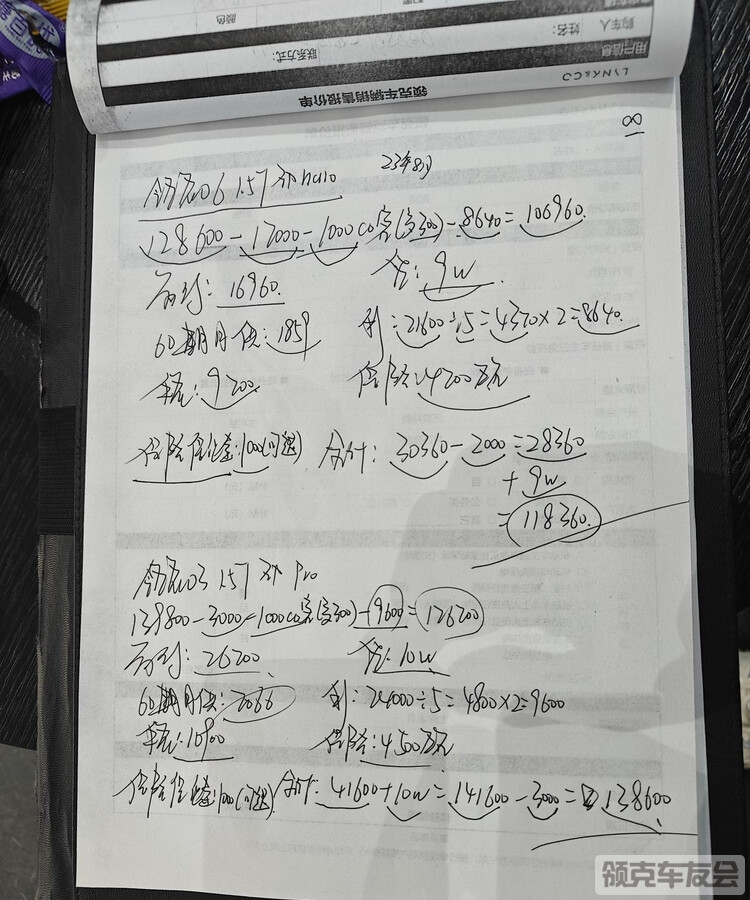 领克车辆销售报价单
LYNK&CO
用户信息
购车人
姓名:
联系方式:
颜色
8
23年8月
领克06 1.5T halo
128600-12000-1000co客(含300)-8640=106960.
首付: 16960.
贷: 9w
60期月供: 1859
利: 21600÷5=4320×2=8640.
车税: 9200
保险: 4200左右
保险保证金: 1000(可退)
合计: 30360-2000=28360
+9w
=118360.
领克03 1.5T Pro
139800-3000-1000co客(含300)-9600=126200
首付: 26200
贷: 10w
60期月供: 2066
利: 24000÷5=4800×2=9600
车税: 10900
保险: 4500左右
保险保证金: 1000(可退)
合计: 41600+10w=141600-3000=138600
领克车友会